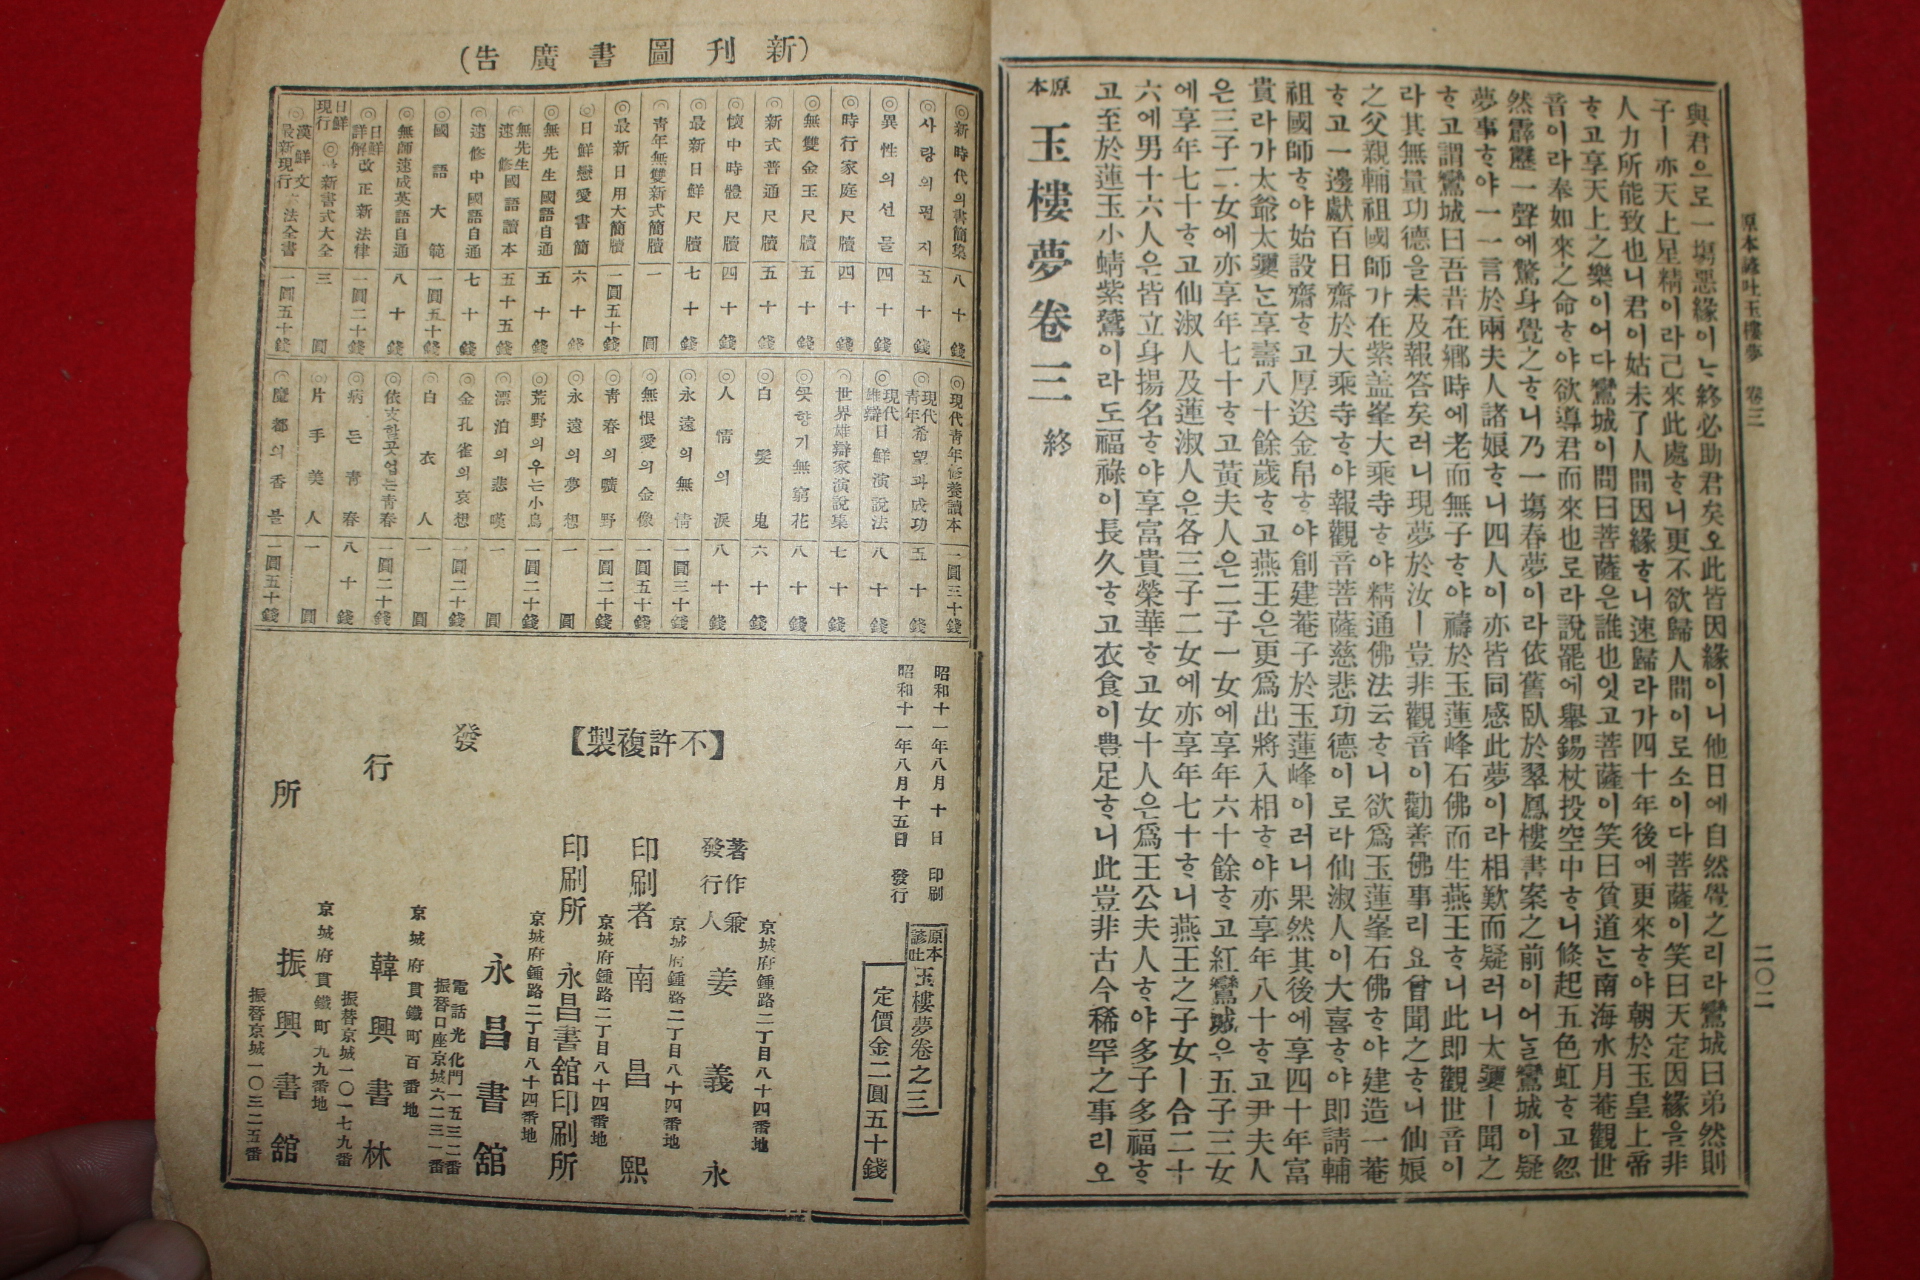 原本諺吐玉樓夢 卷三
二〇二
與君으로一塲惡緣이는終必助君矣오此皆因緣이니他日에自然覺之리라鸞城曰弟然則
子ㅣ亦天上星精이라己來此處ᄒᆞ니更不欲歸人間이로소이다菩薩이笑曰天定因緣을非
人力所能致也니君이姑未了人間因緣ᄒᆞ니速歸라가四十年後에更來ᄒᆞ야朝於玉皇上帝
ᄒᆞ고享天上之樂이어다鸞城이問曰菩薩은誰也잇고菩薩이笑曰貧道는南海水月菴觀世
音이라奉如來之命ᄒᆞ야欲導君而來也로라說罷에擧錫杖投空中ᄒᆞ니倐起五色虹ᄒᆞ고忽
然霹靂一聲에驚身覺之ᄒᆞ니乃一塲春夢이라依舊臥於翠鳳樓書案之前이어늘鸞城이疑
夢事ᄒᆞ야一一言於兩夫人諸娘ᄒᆞ니四人이亦皆同感此夢이라相歎而疑러니太䕫ㅣ聞之
ᄒᆞ고謂鸞城曰吾昔在鄕時에老而無子ᄒᆞ야禱於玉蓮峰石佛而生燕王ᄒᆞ니此卽觀世音이
라其無量功德을未及報答矣러니現夢於汝ㅣ豈非觀音이勸善佛事리요曾聞之ᄒᆞ니仙娘
之父親輔祖國師가在紫盖峯大乘寺ᄒᆞ야精通佛法云ᄒᆞ니欲爲玉蓮峯石佛ᄒᆞ야建造一菴
ᄒᆞ고一邊獻百日齋於大乘寺ᄒᆞ야報觀音菩薩慈悲功德이로라仙淑人이大喜ᄒᆞ야卽請輔
祖國師ᄒᆞ야始設齋ᄒᆞ고厚送金帛ᄒᆞ야創建菴子於玉蓮峰이러니果然其後에享四十年富
貴라가太爺太䕫는享壽八十餘歲ᄒᆞ고燕王은更爲出將入相ᄒᆞ야亦享年八十ᄒᆞ고尹夫人
은三子二女에亦享年七十ᄒᆞ고黃夫人은二子一女에享年六十餘ᄒᆞ고紅鸞城은五子三女
에享年七十ᄒᆞ고仙淑人及蓮淑人은各三子二女에亦享年七十ᄒᆞ니燕王之子女ㅣ合二十
六에男十六人은皆立身揚名ᄒᆞ야享富貴榮華ᄒᆞ고女十人은爲王公夫人ᄒᆞ야多子多福ᄒᆞ
고至於蓮玉小蜻紫鸞이라도福祿이長久ᄒᆞ고衣食이豊足ᄒᆞ니此豈非古今稀罕之事리오
原本 玉樓夢卷三 終
(新刊圖書廣告)
◎新時代의書簡集 八十錢
◎사랑의편지 五十錢
◎異性의선물 四十錢
◎時行家庭尺牘 四十錢
◎無雙金玉尺牘 五十錢
◎新式普通尺牘 五十錢
◎懷中時體尺牘 四十錢
◎最新日鮮尺牘 七十錢
◎靑年無雙新式簡牘 一圓
◎最新日用大簡牘 一圓五十錢
◎日鮮戀愛書簡 六十錢
◎無先生國語自通 五十錢
◎無先生速修國語讀本 五十五錢
◎速修中國語自通 七十錢
◎國語大範 一圓五十錢
◎無師速成英語自通 八十錢
◎日鮮詳解改正新法律 一圓二十錢
日鮮現行◎最新書式大全 三圓
◎漢鮮文最新現行六法全書 一圓五十錢
◎現代靑年修養讀本 一圓三十錢
◎現代靑年希望과成功 五十錢
◎現代雄辯日鮮演說法 八十錢
◎世界雄辯家演說集 七十錢
◎못향기無窮花 八十錢
◎白髮鬼 六十錢
◎人情의淚 八十錢
◎永遠의無情 一圓三十錢
◎無恨愛의金像 一圓五十錢
◎靑春의曠野 一圓二十錢
◎永遠의夢想 一圓
◎荒野의우는小鳥 一圓二十錢
◎漂泊의悲嘆 一圓
◎金孔雀의哀想 一圓二十錢
◎白衣人 一圓
◎依支할곳업는靑春 一圓二十錢
◎病든靑春 八十錢
◎片手美人 一圓
◎魔都의香불 一圓五十錢
昭和十一年八月十日 印刷
昭和十一年八月十五日 發行
原本諺吐 玉樓夢卷之三
定價金二圓五十錢
【不許複製】
京城府鍾路二丁目八十四番地
著作兼發行人 姜義永
京城府鍾路二丁目八十四番地
印刷者 南昌熙
京城府鍾路二丁目八十四番地
印刷所 永昌書舘印刷所
京城府鍾路二丁目八十四番地
發行所
永昌書舘
電話光化門一五三二番
振替口座京城六二三一番
京城府貫鐵町百番地
韓興書林
振替京城一〇一七九番
京城府貫鐵町九九番地
振興書舘
振替京城一〇三二五番